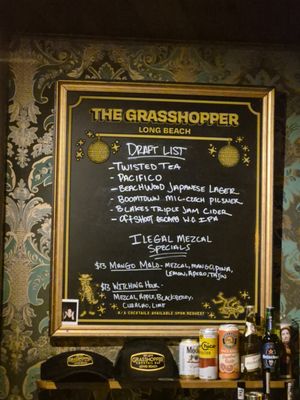 THE GRASSHOPPER
LONG BEACH
DRAFT LIST
- TWISTED TEA
- PACIFICO
- BEACHWOOD JAPANESE LAGER
- BOOMTOWN MIC-CZECH PILSNER
- BLAKES TRIPLE JAM CIDER
- OFFSHOOT W.C IPA
ILEGAL MEZCAL
SPECIALS
$13 MANGO MALO - MEZCAL, MANGO, PIÑA,
LEMON, APERO, TAJIN
$13 WITCHING HOUR -
MEZCAL, APPLE, BLACKBERRY,
LIME
N/A COCKTAILS AVAILABLE UPON REQUEST
GRASSHOPPER
GRASSHOPPER
Modelo
Chico